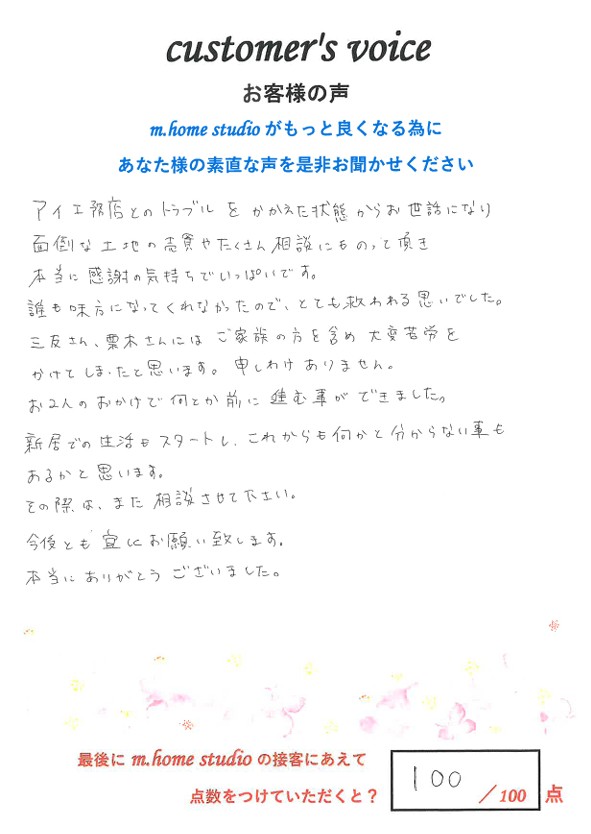 customer's voice
お客様の声
m.home studio がもっと良くなる為に
あなた様の素直な声を是非お聞かせください
アイ工務店とのトラブルをかかえた状態からお世話になり
面倒な土地の売買やたくさん相談にものって頂き
本当に感謝の気持ちでいっぱいです。
誰も味方になってくれなかったので、とても救われる思いでした。
三友さん、栗木さんにはご家族の方を含め大変苦労を
かけてしまったと思います。申しわけありません。
お2人のおかげで何とか前に進む事ができました。
新居での生活もスタートし、これからも何かと分からない事も
あるかと思います。
その際は、また相談させて下さい。
今後とも宜しくお願い致します。
本当にありがとうございました。
最後に m.home studio の接客にあえて
点数をつけていただくと？ 100 / 100 点